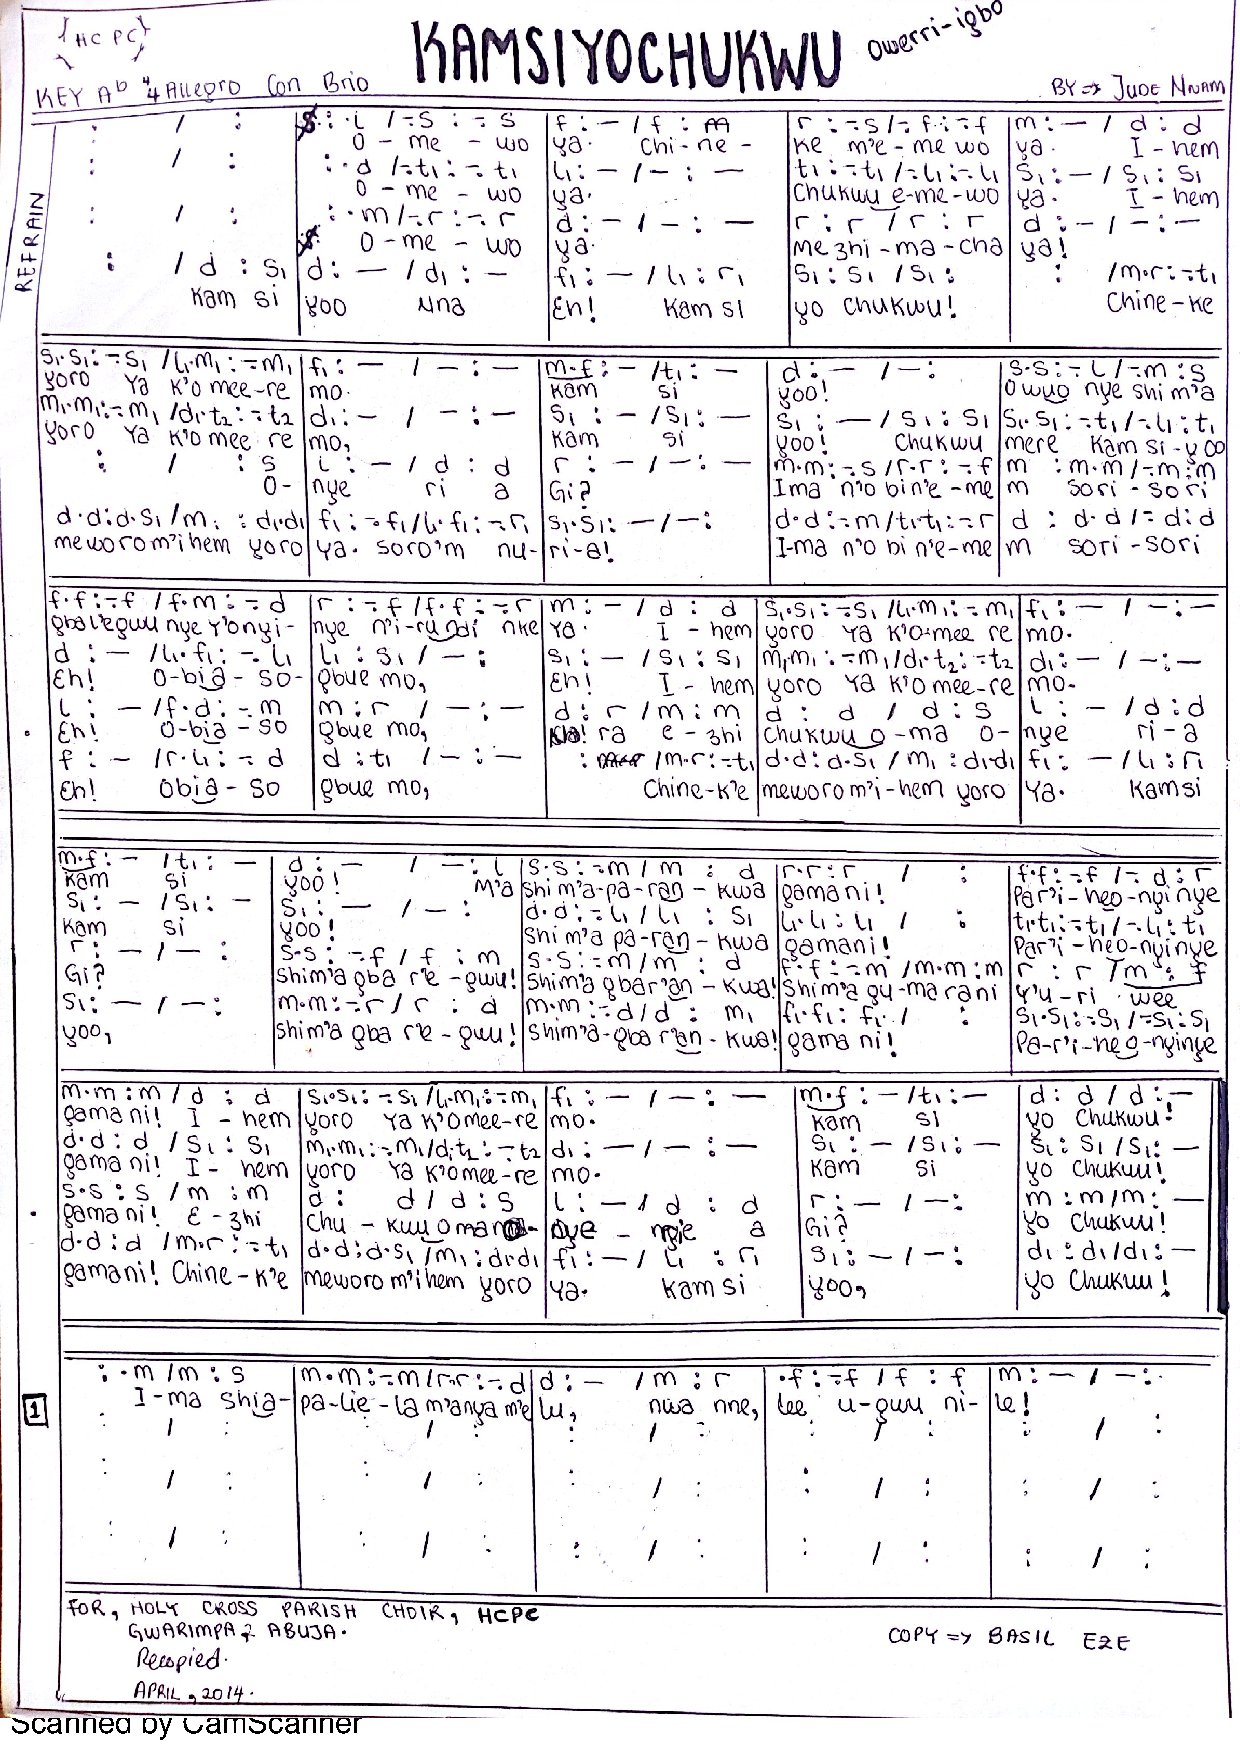 {HC PC}
KAMSIYOCHUKWU
Owerri-igbo
KEY Ab 4/4 Allegro Con Brio
BY => JUDE NNAM
REFRAIN
: / : | S: ·l /-·s : -·s | f : — / f : m | r : -·s /-·f : -·f | m : — / d : d
O - me - wo | ya. Chi - ne - | ke m'e - me wo | ya. I - hem
: / : | : ·d /-·t₁ : -·t₁ | l₁ : — / — : — | t₁ : -·t₁ /-·l₁ : -·l₁ | s₁ : — / s₁ : s₁
O - me - wo | ya. | Chukwu e-me-wo | ya. I - hem
: / : | : ·m /-·r : -·r | d : — / — : — | r : r / r : r | d : — / — : —
O - me - wo | ya. | me zhi - ma - cha | ya!
: / d : s₁ | d : — / d₁ : — | f₁ : — / l₁ : r₁ | s₁ : s₁ / s₁ : | : /m·r : -·t₁
Kam si | yoo Nna | Eh! Kam si | yo Chukwu! | Chine - ke
s₁·s₁ : -·s₁ /l₁·m₁ : -·m₁ | f₁ : — / — : — | m·f : — /t₁ : — | d : — / — : | s·s : -·l /-·m : s
yoro Ya k'o mee-re | mo. | Kam si | yoo! | Owuo nye shi m'a
m₁·m₁ : -·m₁ /d₁·t₂ : -·t₂ | d₁ : — / — : — | s₁ : — /s₁ : — | s₁ : — / s₁ : s₁ | s₁·s₁ : -·t₁ /-·l₁ : t₁
yoro Ya k'o mee re | mo, | Kam si | yoo! Chukwu | mere Kam si - yoo
: / : s | l : — / d : d | r : — / — : — | m·m : -·s /r·r : -·f | m : m·m /-·m : m
O- | nye ri a | Gi? | Ima n'o bi n'e - me | m sori - sori
d·d : d·s₁ /m₁ : d₁·d₁ | f₁ : -·f₁ /l₁·f₁ : -·r₁ | s₁·s₁ : — / — : | d·d : -·m /t₁·t₁ : -·r | d : d·d /-·d : d
meworo m'ihem yoro | Ya. soro'm nu- | ri-a! | I-ma n'o bi n'e-me | m sori - sori
f·f : -·f /f·m : -·d | r : -·f /f·f : -·r | m : — / d : d | s₁·s₁ : -·s₁ /l₁·m₁ : -·m₁ | f₁ : — / — : —
gbal'egwu nye y'onyi- | nye n'i-rundi nke | Ya. I - hem | yoro Ya k'o-mee re | mo.
d : — /l₁·f₁ : -·l₁ | l₁ : s₁ / — : | s₁ : — / s₁ : s₁ | m₁·m₁ : -·m₁ /d₁·t₂ : -·t₂ | d₁ : — / — : —
Eh! O-bia - so- | gbue mo, | Eh! I - hem | yoro Ya k'o mee-re | mo.
l : — /f·d : -·m | m : r / — : — | d : r / m : m | d : d / d : s | l : — / d : d
Eh! O-bia - so | gbue mo, | ra e - zhi | Chukwu o - ma o- | nye ri - a
f : — /r·l₁ : -·d | d : t₁ / — : — | : /m·r : -·t₁ | d·d : d·s₁ / m₁ : d₁·d₁ | f₁ : — / l₁ : r₁
Eh! Obia - so | gbue mo, | Chine-k'e | meworo m'i-hem yoro | Ya. Kamsi
m·f : — /t₁ : — | d : — / — : l | s·s : -·m / m : d | r·r : r / : | f·f : -·f /-·d : r
Kam si | yoo! M'a | Shi m'a-pa-ran - kwa | gamani! | Par'i-neo-nyinye
s₁ : — /s₁ : — | s₁ : — / — : — | d·d : -·l₁ / l₁ : s₁ | l₁·l₁ : l₁ / : | t₁·t₁ : -·t₁ /-·l₁ : t₁
Kam si | yoo! | Shi m'a pa-ran - kwa | gamani! | Par'i-neo-nyinye
r : — / — : | s·s : -·f / f : m | s·s : -·m / m : d | f·f : -·m /m·m : m | r : r /m : f
Gi? | Shim'a gba r'e - gwu! | Shim'a gbar'an - kwa! | Shim'a gu-ma rani | Y'u - ri wee
s₁ : — / — : | m·m : -·r / r : d | m·m : -·d / d : m₁ | f₁·f₁ : f₁ / : | s₁·s₁ : -·s₁ /-·s₁ : s₁
yoo, | Shim'a gba r'e - gwu! | Shim'a-gba r'an - kwa! | gama ni! | Pa-r'i-neo-nyinye
m·m : m / d : d | s₁·s₁ : -·s₁ /l₁·m₁ : -·m₁ | f₁ : — / — : — | m·f : — /t₁ : — | d : d / d : —
gamani! I - hem | yoro Ya k'o mee-re | mo. | Kam si | yo Chukwu!
d·d : d / s₁ : s₁ | m₁·m₁ : -·m₁/d₁·t₂ : -·t₂ | d₁ : — / — : — | s₁ : — / s₁ : — | s₁ : s₁ /s₁ : —
gama ni! I - hem | yoro Ya k'o mee-re | mo. | Kam si | yo Chukwu!
s·s : s / m : m | d : d / d : s | l : — / d : d | r : — / — : | m : m/m : —
gamani! E - zhi | Chu - kwu oma | a | Gi? | yo Chukwu!
d·d : d / m·r : -·t₁ | d·d : d·s₁ /m₁ : d₁·d₁ | f₁ : — / l₁ : r₁ | s₁ : — / — : | d₁ : d₁/d₁ : —
gamani! Chine-k'e | meworo m'ihem yoro | Ya. Kam si | yoo, | yo Chukwu!
1
: ·m /m : s | m·m : -·m /r·r : -·d | d : — / m : r | ·f : -·f / f : f | m : — / — :
I-ma shia- | pa-lie-la m'anya m'e | lu, nwa nne, | lee u-gwu ni- | le!
: / : | : / : | : / : | : / : | : / :
: / : | : / : | : / : | : / : | : / :
: / : | : / : | : / : | : / : | : / :
FOR, HOLY CROSS PARISH CHOIR, HCPC
GWARIMPA, ABUJA.
Recopied.
APRIL, 2014.
COPY => BASIL EZE
Scanned by CamScanner